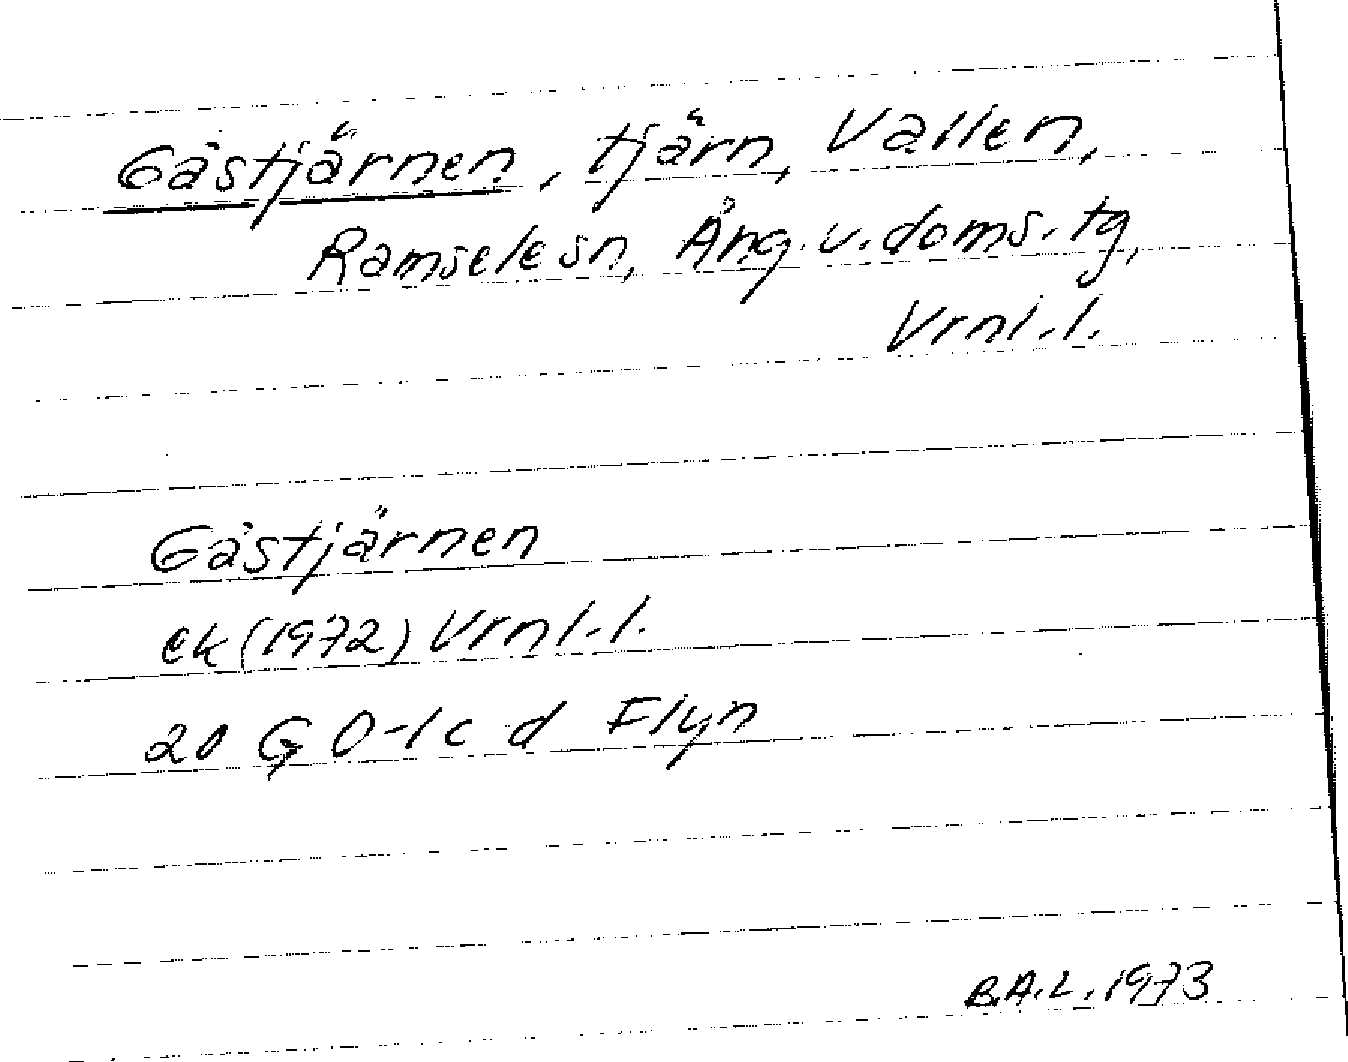 Gåstjärnen, tjärn, Vallen,
Ramselesn, Ång.v.doms.tg,
Vrnl.l.
Gåstjärnen
ek (1972) Vrnl.l.
20 G 0-1 c d Flyn
B.A.L. 1973